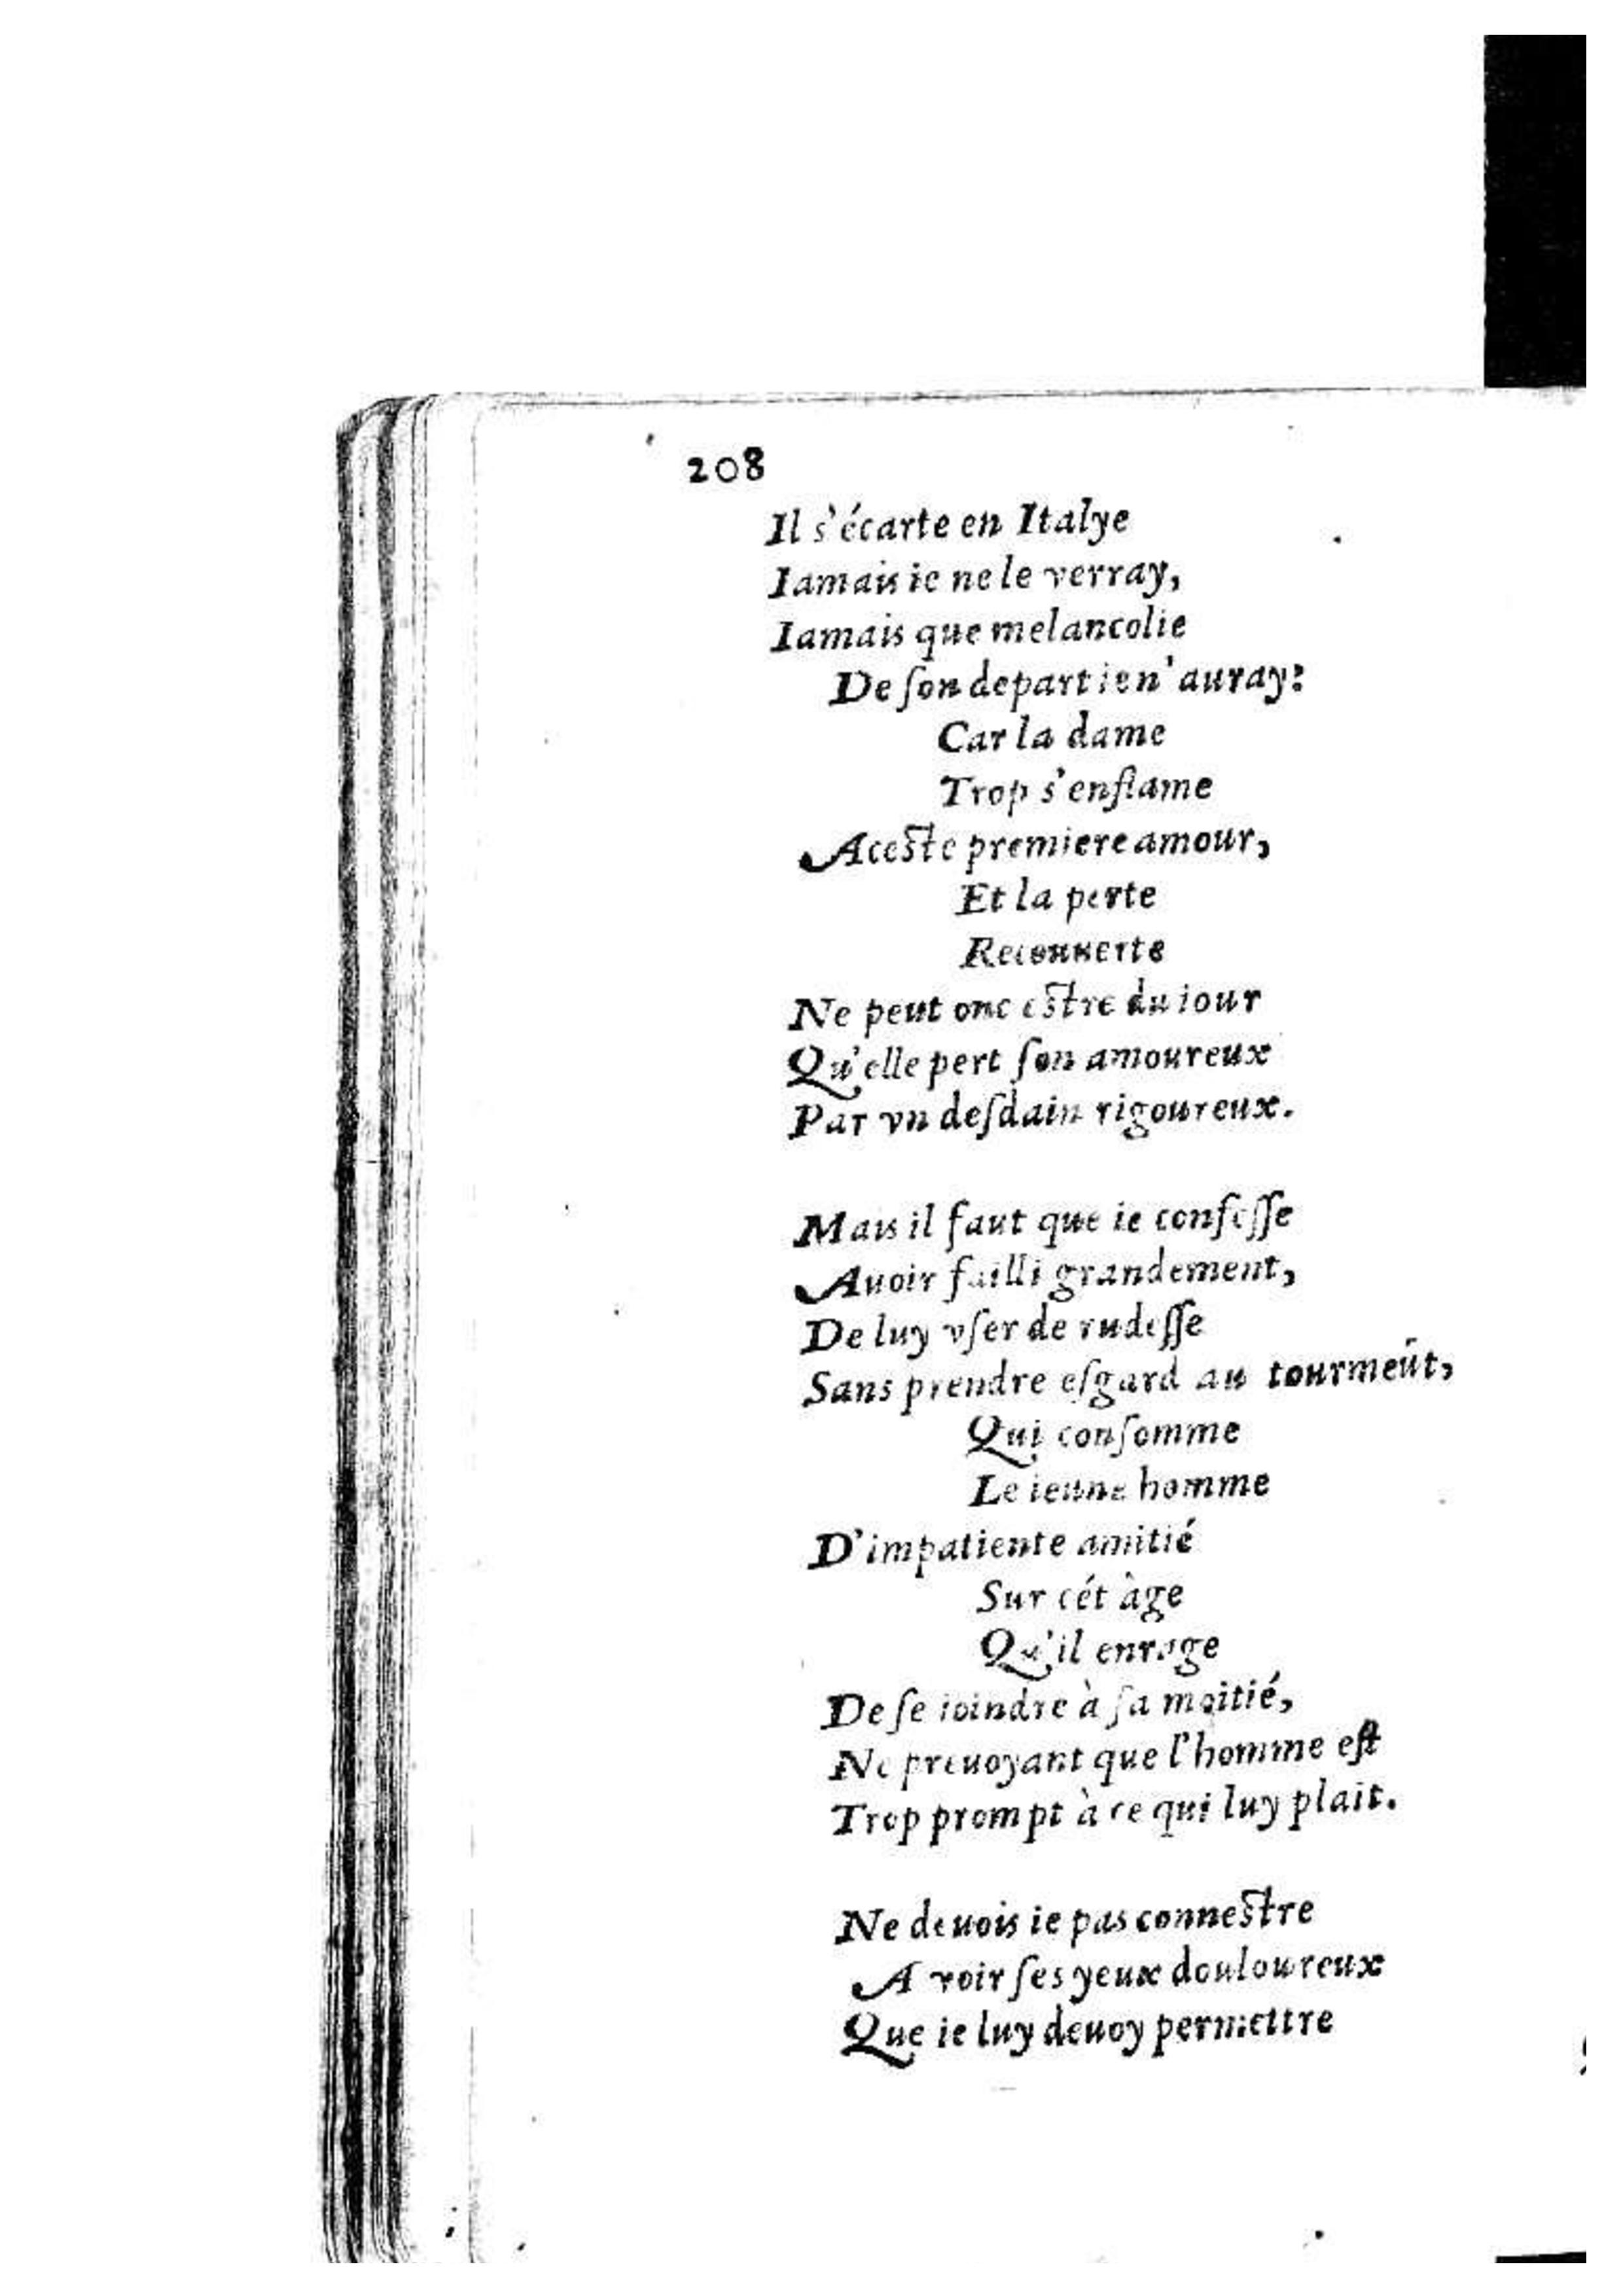 208
Il s'écarte en Italye
Iamais ie ne le verray,
Iamais que melancolie
De ſon depart ie n'auray:
Car la dame
Trop s'enflame
A ceſte premiere amour,
Et la perte
Recouuerte
Ne peut onc eſtre du iour
Qu'elle pert ſon amoureux
Par vn deſdain rigoureux.
Mais il faut que ie confeſſe
Auoir failli grandement,
De luy vſer de rudeſſe
Sans prendre eſgard au tourmēt,
Qui conſomme
Le ieune homme
D'impatiente amitié
Sur cét àge
Qu'il enrage
De ſe ioindre à ſa moitié,
Ne preuoyant que l'homme eſt
Trop prompt à ce qui luy plait.
Ne deuois ie pas conneſtre
A voir ſes yeux douloureux
Que ie luy deuoy permettre